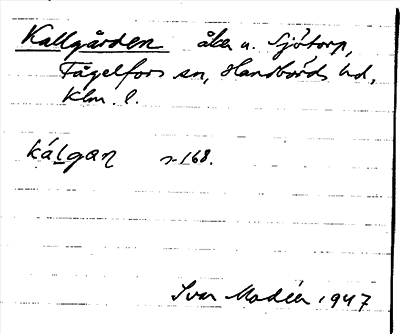 Kallgården åker u. Sjötorp,
Fågelfors sn, Handbörds hd,
Klm. l.
kálgan s. 168.
Ivar Modéer 1947